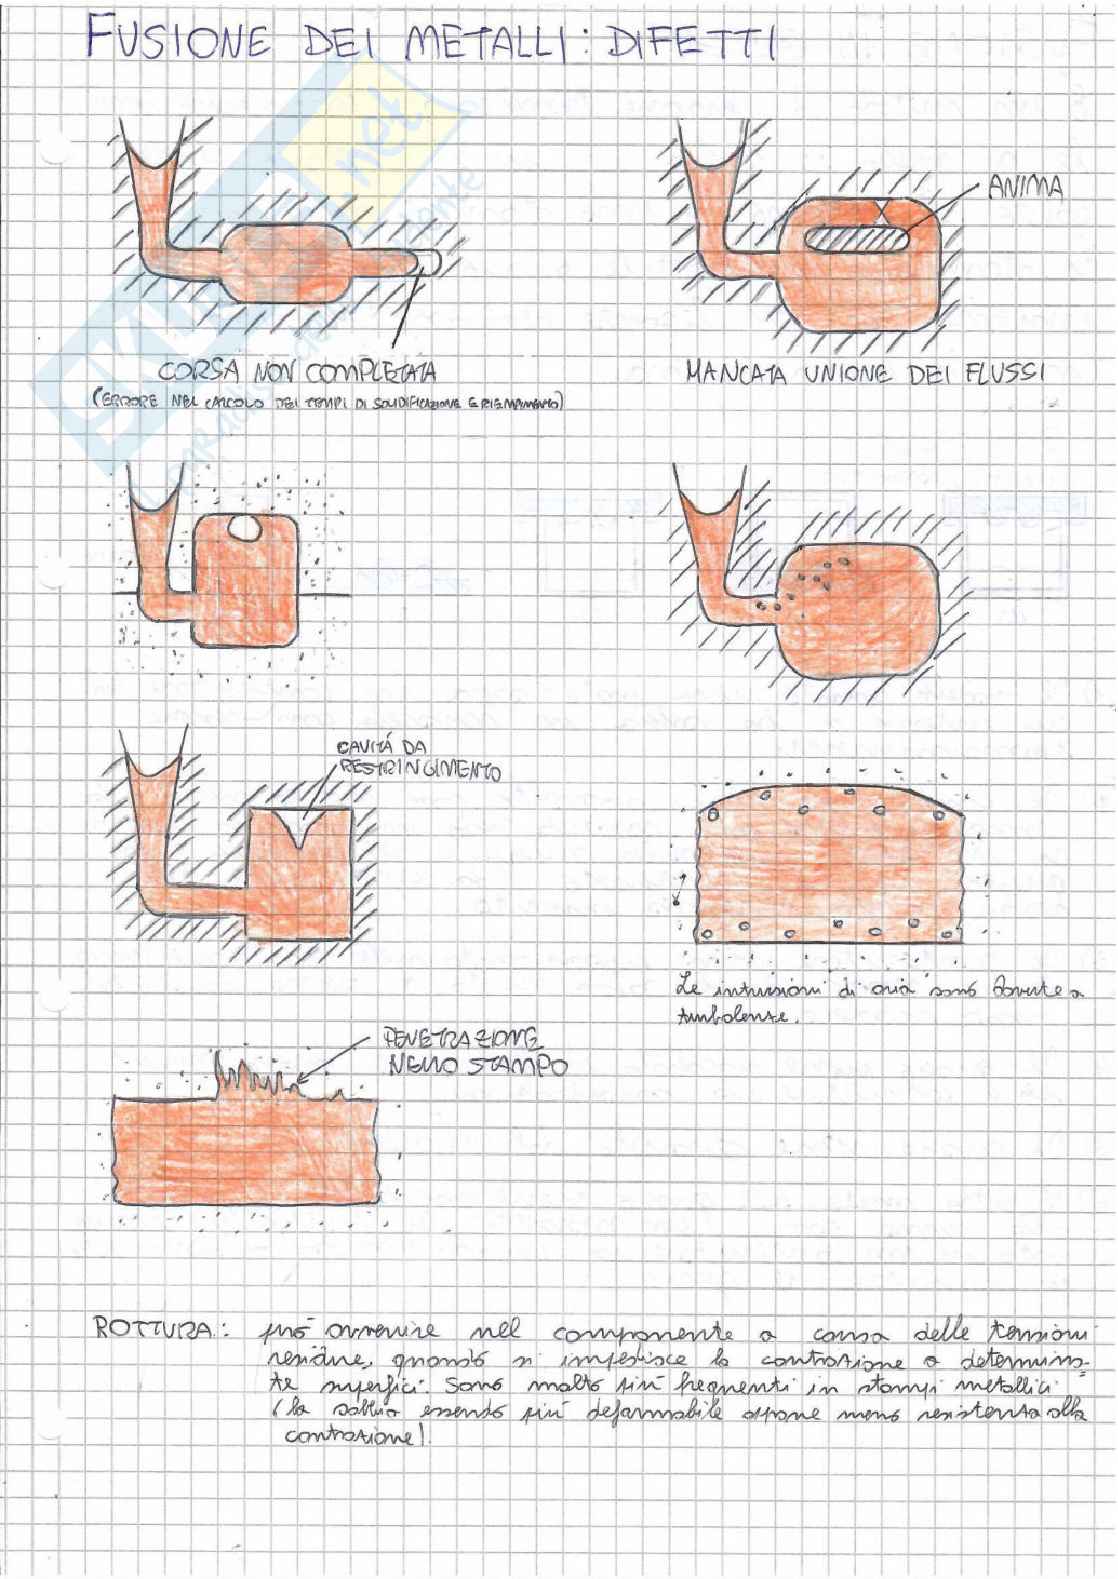 FUSIONE DEI METALLI: DIFETTI
ANIMA
CORSA NON COMPLETATA
(ERRORE NEL CALCOLO DEI TEMPI DI SOLIDIFICAZIONE E RIEMPIMENTO)
MANCATA UNIONE DEI FLUSSI
CAVITÁ DA
RESTRINGIMENTO
Le intrusioni di aria sono dovute a
turbolenze.
PENETRAZIONE
NELLO STAMPO
ROTTURA: può avvenire nel componente a causa delle tensioni
residue, quando si impedisce la contrazione a determina-
te superfici. Sono molto più frequenti in stampi metallici
(la sabbia essendo più deformabile oppone meno resistenza alla
contrazione).
.net